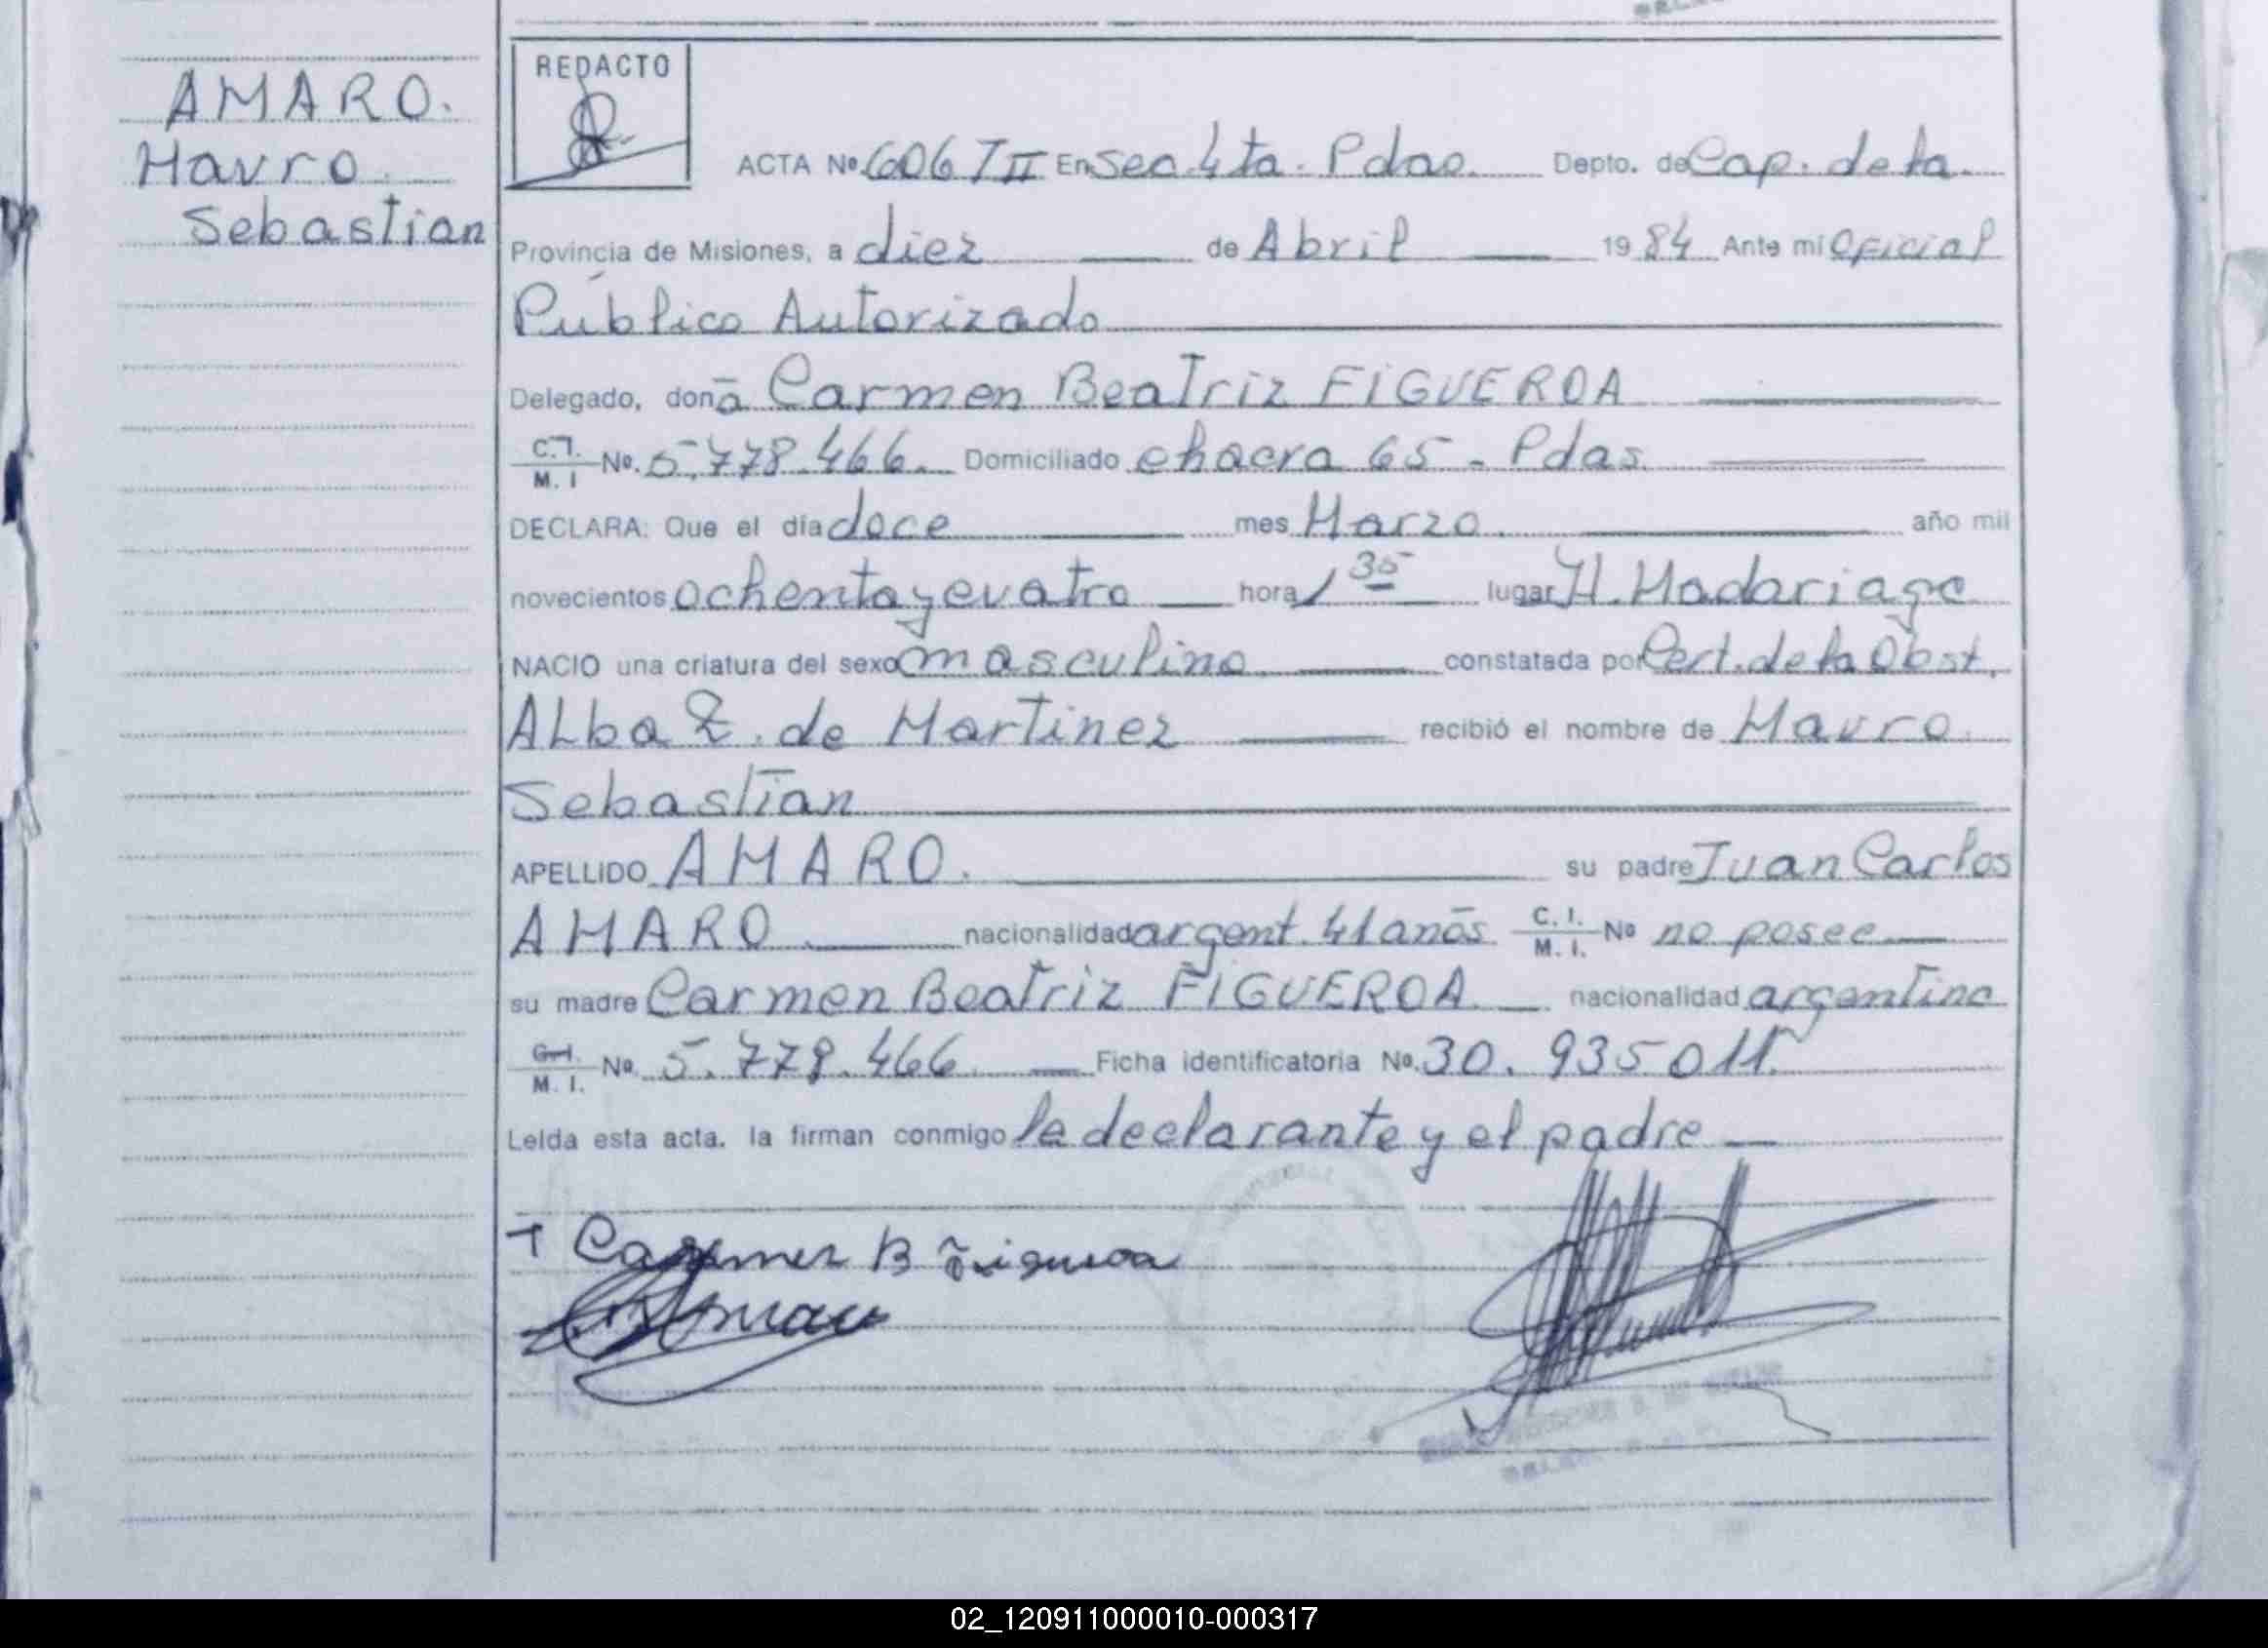 AMARO.
Mauro
Sebastian
REDACTO
ACTA Nº 606 T II En Sec. 4ta. Pdas. Depto. de Cap. de la
Provincia de Misiones, a diez de Abril 1984 Ante mi Oficial
Público Autorizado
Delegado, doña Carmen Beatriz FIGUEROA
C.I. M. I Nº. 5.778.466. Domiciliado chacra 65 - Pdas
DECLARA: Que el día doce mes Marzo. año mil
novecientos ochenta y cuatro hora 1 35 lugar H. Madariaga
NACIO una criatura del sexo masculino constatada por Cert. de la Obst.
Alba Z. de Martinez recibió el nombre de Mauro
Sebastian
APELLIDO AMARO. su padre Juan Carlos
AMARO nacionalidad argent. 41 años C. I. M. I. Nº no posee
su madre Carmen Beatriz FIGUEROA nacionalidad argentina
C.I. M. I. Nº. 5.778.466 Ficha identificatoria Nº. 30.935011.
Leida esta acta. la firman conmigo la declarante y el padre
Carmen B Figueroa
02_120911000010-000317